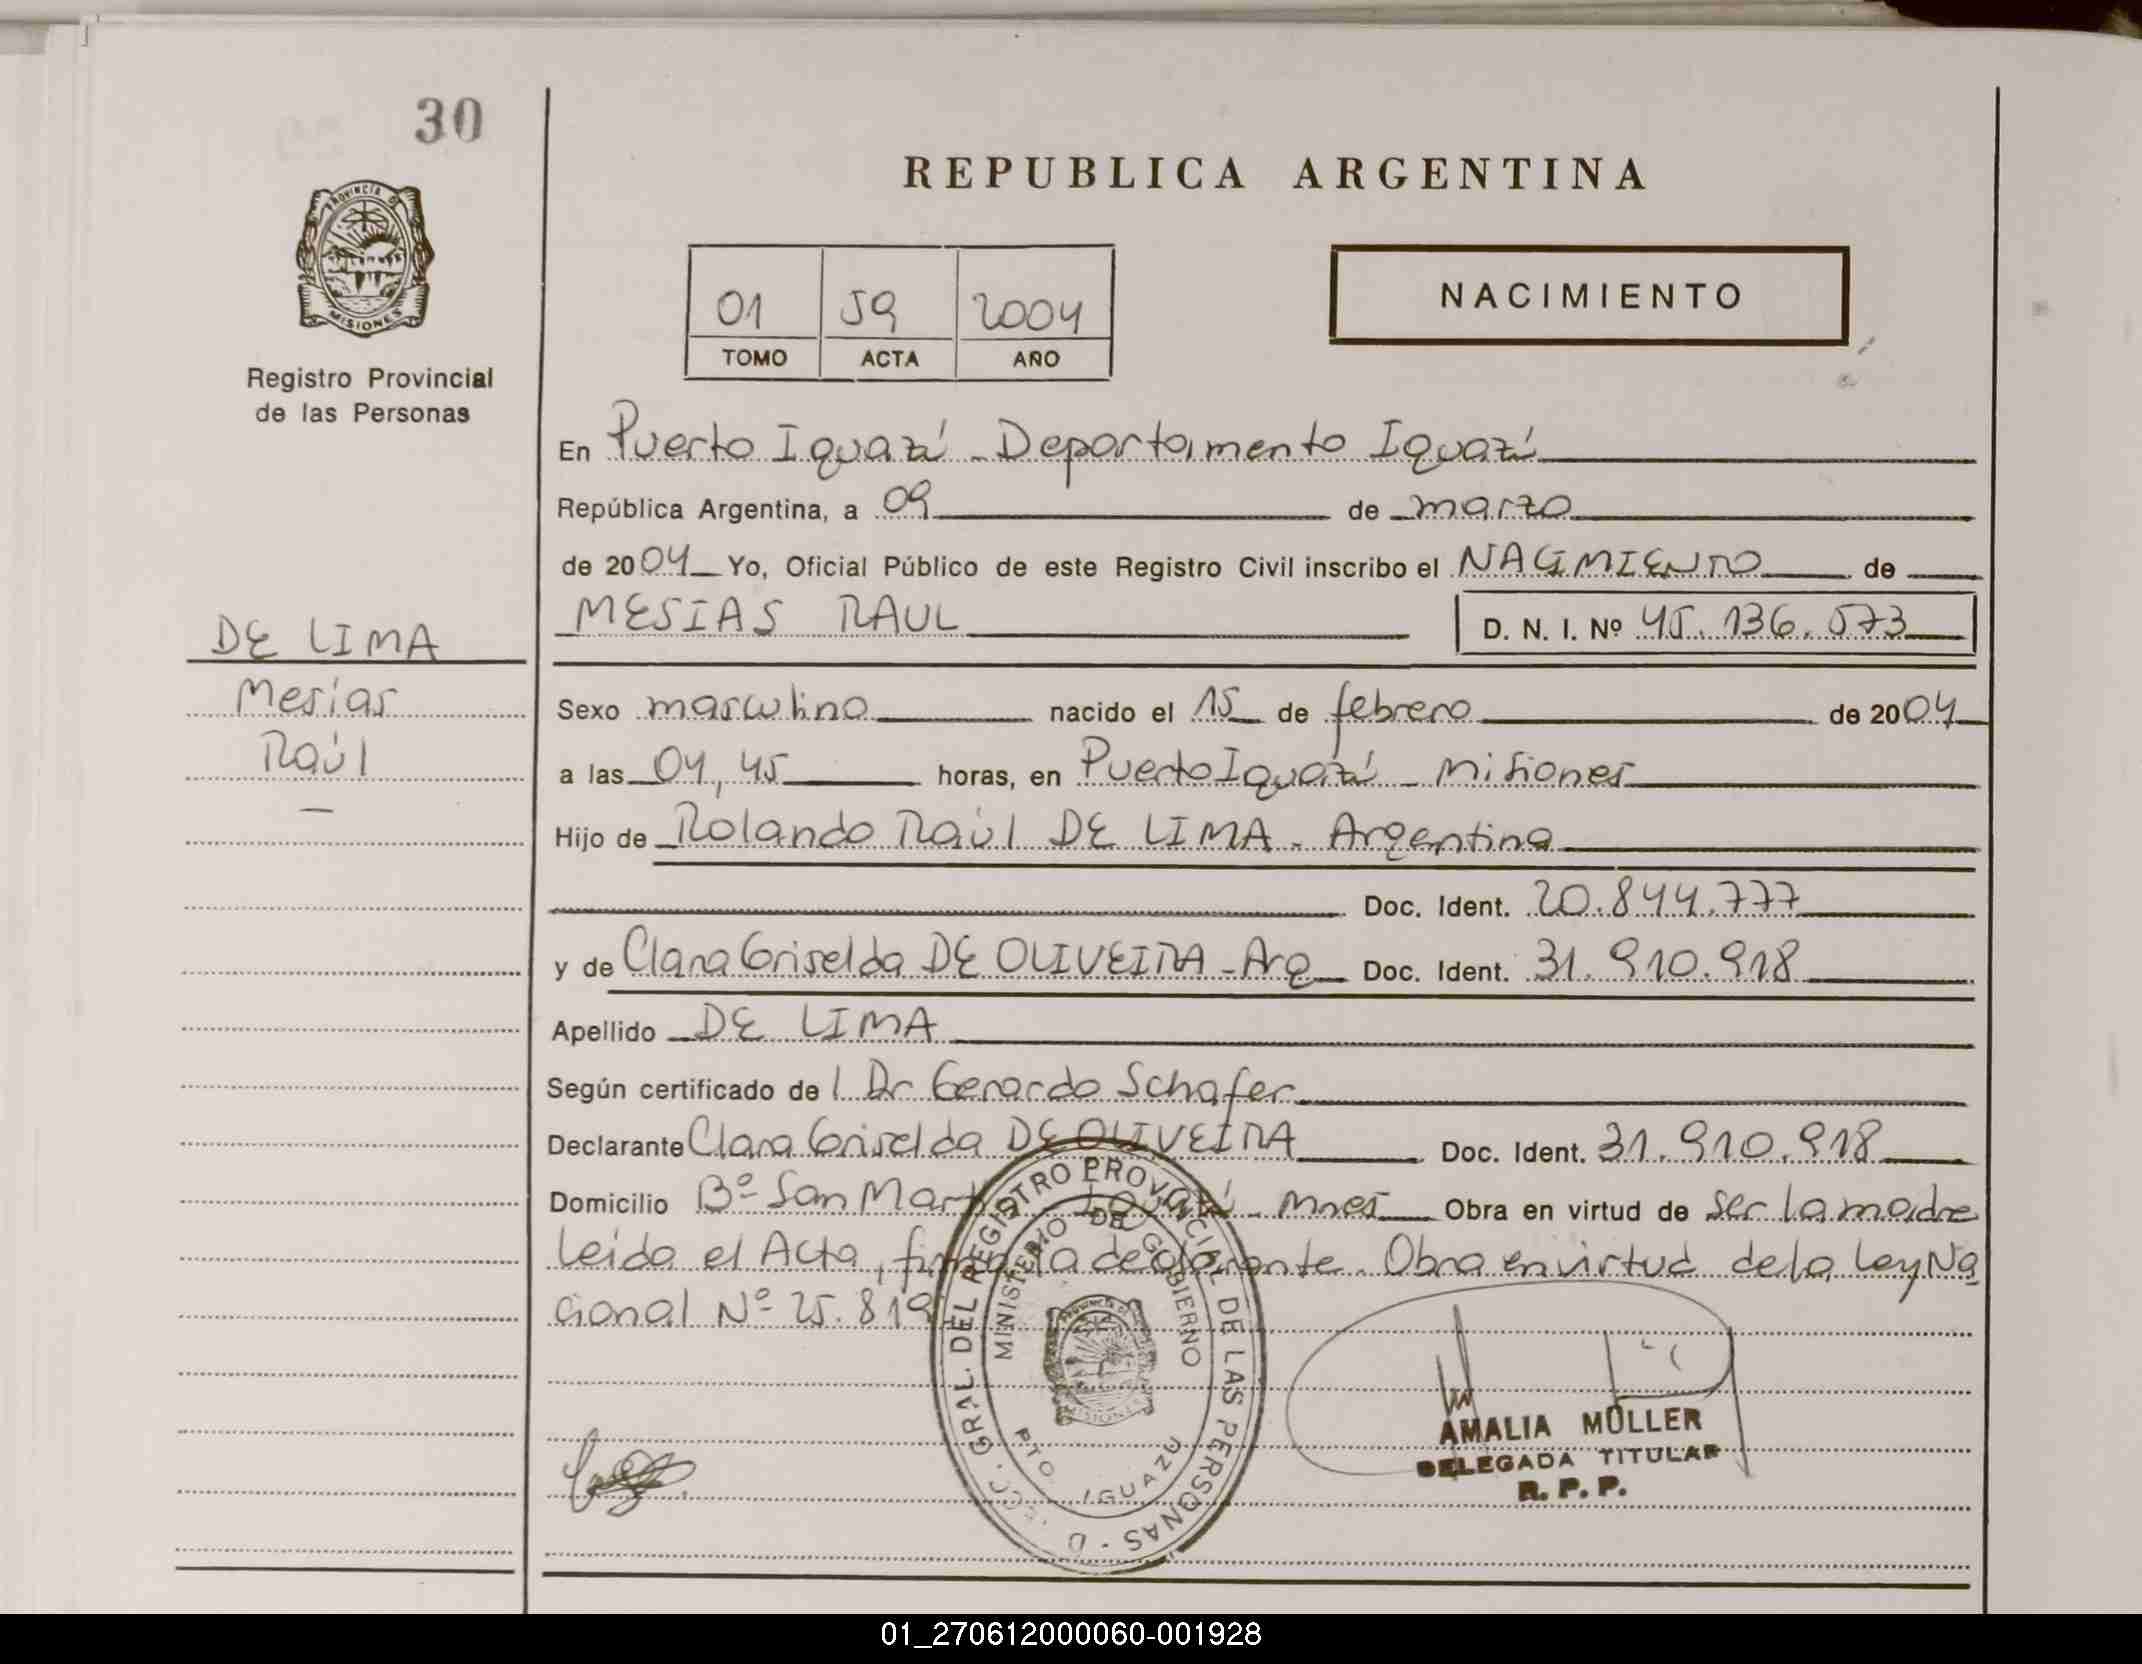 30
REPUBLICA ARGENTINA
PROVINCIA DE
MISIONES
Registro Provincial
de las Personas
01 59 2004
TOMO ACTA AÑO
NACIMIENTO
En Puerto Iguazú - Departamento Iguazú
República Argentina, a 09 de marzo
de 2004 Yo, Oficial Público de este Registro Civil inscribo el NACIMIENTO de
MESIAS RAUL D. N. I. Nº 45.136.573
DE LIMA
Mesías
Raúl
Sexo masculino nacido el 15 de febrero de 2004
a las 04,45 horas, en Puerto Iguazú - Misiones
Hijo de Rolando Raúl DE LIMA - Argentina
Doc. Ident. 20.844.777
y de Clara Griselda DE OLIVEIRA - Arg Doc. Ident. 31.910.918
Apellido DE LIMA
Según certificado de l Dr Gerardo Schafer
Declarante Clara Griselda DE OLIVEIRA Doc. Ident. 31.910.918
Domicilio Bº San Mart Iguazú - Mnes Obra en virtud de ser la madre
leida el Acta, firma la declarante. Obra en virtud de la Ley Na
cional Nº 25.819
GRAL. DEL REGISTRO PROVINCIAL DE LAS PERSONAS
MINISTERIO DE GOBIERNO
PTO. IGUAZU
AMALIA MÜLLER
DELEGADA TITULAR
R. P. P.
01_270612000060-001928